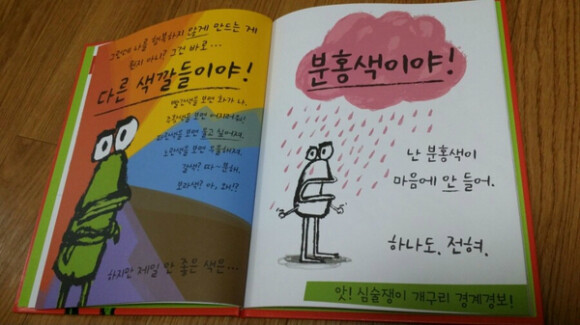 그런데 나를 행복하지 않게 만드는 게
뭔지 아니? 그건 바로...
다른 색깔들이야!
빨간색을 보면 화가 나.
주황색을 보면 어지러워!
파란색을 보면 울고 싶어져.
노란색을 보면 우울해져.
갈색? 따~분해.
보라색? 아, 왜!?
하지만 제일 안 좋은 색은...
분홍색이야!
난 분홍색이
마음에 안 들어.
하나도. 전혀.
앗! 심술쟁이 개구리 경계경보!